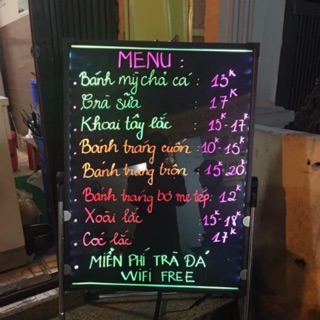 MENU :
. Bánh mỳ chả cá : 13K
. Trà sữa 17K
. Khoai tây lắc 15K-17K
. Bánh trang cuôn - 10K-15K
. Bánh trang trộn - 15K-20K
. Bánh trang bơ me tép: 12K
. Xoài lắc 15K-18K
. Cóc lắc 17K
MIỄN PHÍ TRÀ ĐÁ
WIFI FREE